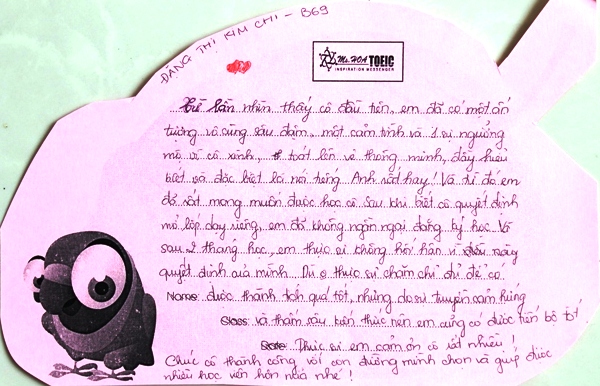 ĐẶNG THỊ KIM CHI - B69
Ms. HOA TOEIC
INSPIRATION MESSENGER
lần nhìn thấy cô đầu tiên, em đã có một ấn
tượng vô cùng sâu đậm, một cảm tình và 1 sự ngưỡng
mộ vì cô xinh, toát lên vẻ thông minh, đầy hiểu
biết và đặc biệt là nói tiếng Anh rất hay! Và từ đó em
đã rất mong muốn được học cô. Sau khi biết cô quyết định
mở lớp dạy riêng, em đã không ngần ngại đăng ký học. Và
sau 2 tháng học, em thực sự không hối hận vì
quyết định của mình. Dù thực sự chăm chỉ để có
Name: được thành tích quá tốt, nhưng do sự truyền cảm hứng
Class: và thấm sâu kiến thức nên em cũng có được tiến bộ tốt
Date: Thực sự em cảm ơn cô rất nhiều!
Chúc cô thành công với con đường mình chọn và giúp được
nhiều học viên hơn nữa nhé!